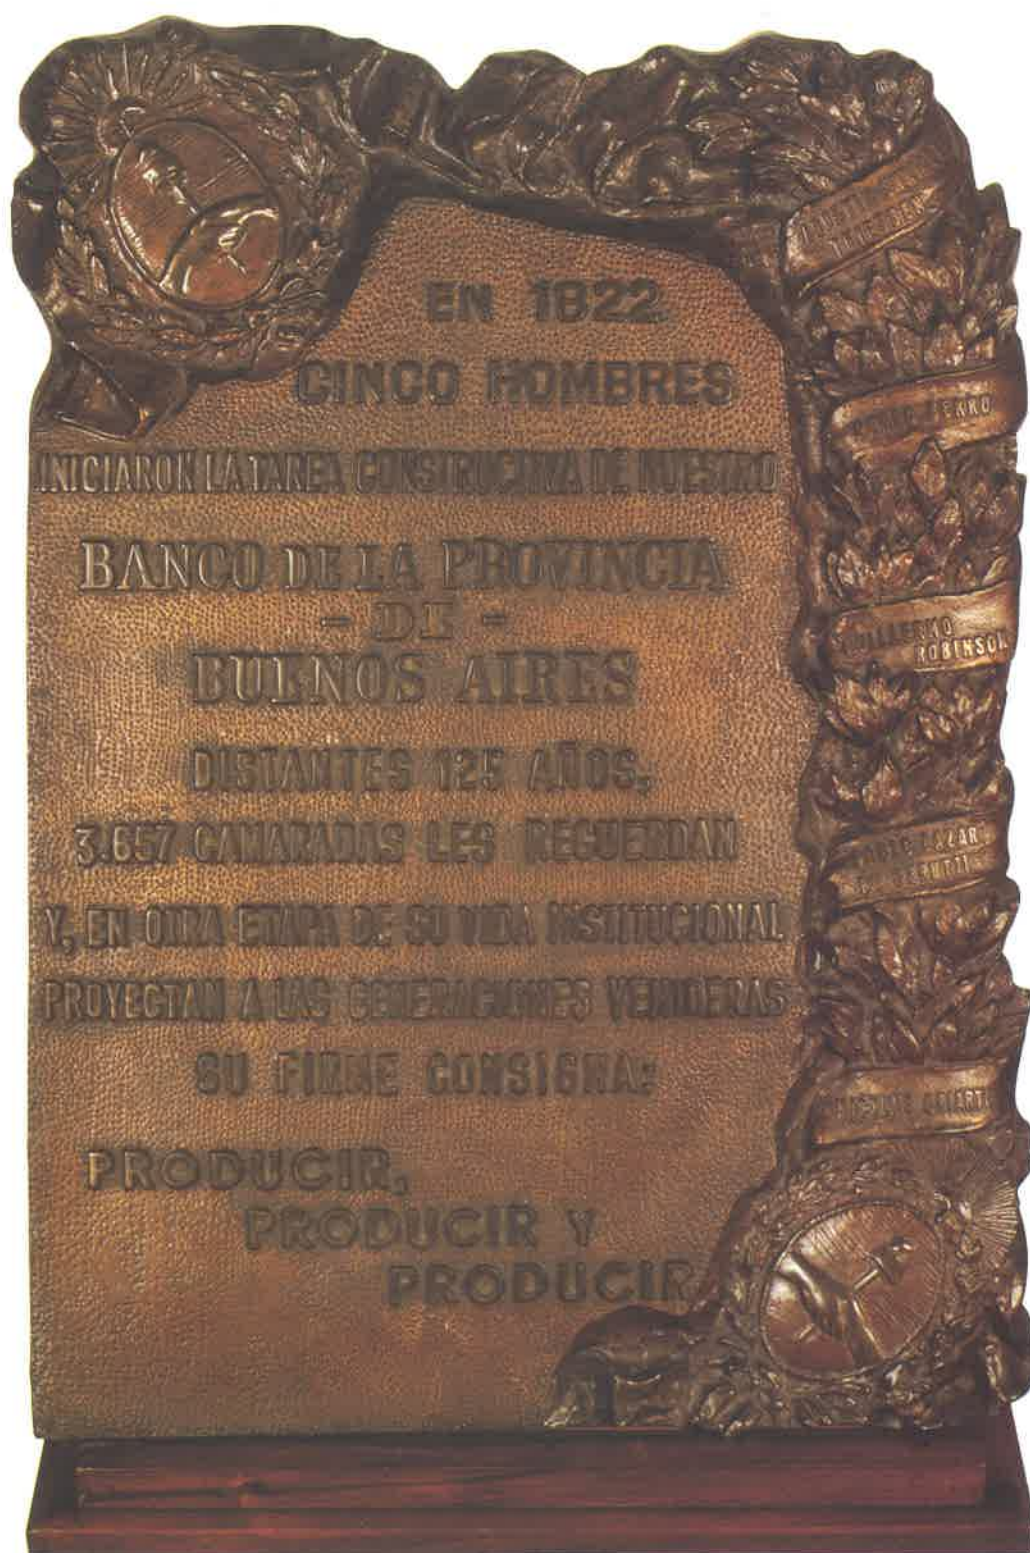 EN 1822
CINCO HOMBRES
INICIARON LA TAREA CONSTRUCTIVA DE NUESTRO
BANCO DE LA PROVINCIA
- DE -
BUENOS AIRES
DISTANTES 125 AÑOS,
3.657 CAMARADAS LES RECUERDAN
Y, EN OTRA ETAPA DE SU VIDA INSTITUCIONAL
PROYECTAN A LAS GENERACIONES VENIDERAS
SU FIRME CONSIGNA:
PRODUCIR,
PRODUCIR Y
PRODUCIR
FIERRO
GUILLERMO
ROBINSON